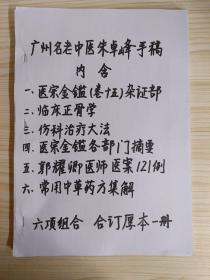 广州名老中医朱卓峰手稿
内含
一、医宗金鑑(卷十五)杂证部
二、临床正骨学
三、伤科治疗大法
四、医宗金鑑各部门摘要
五、郭耀卿医师医案121例
六、常用中草药方集解
六项组合 合订厚本一册